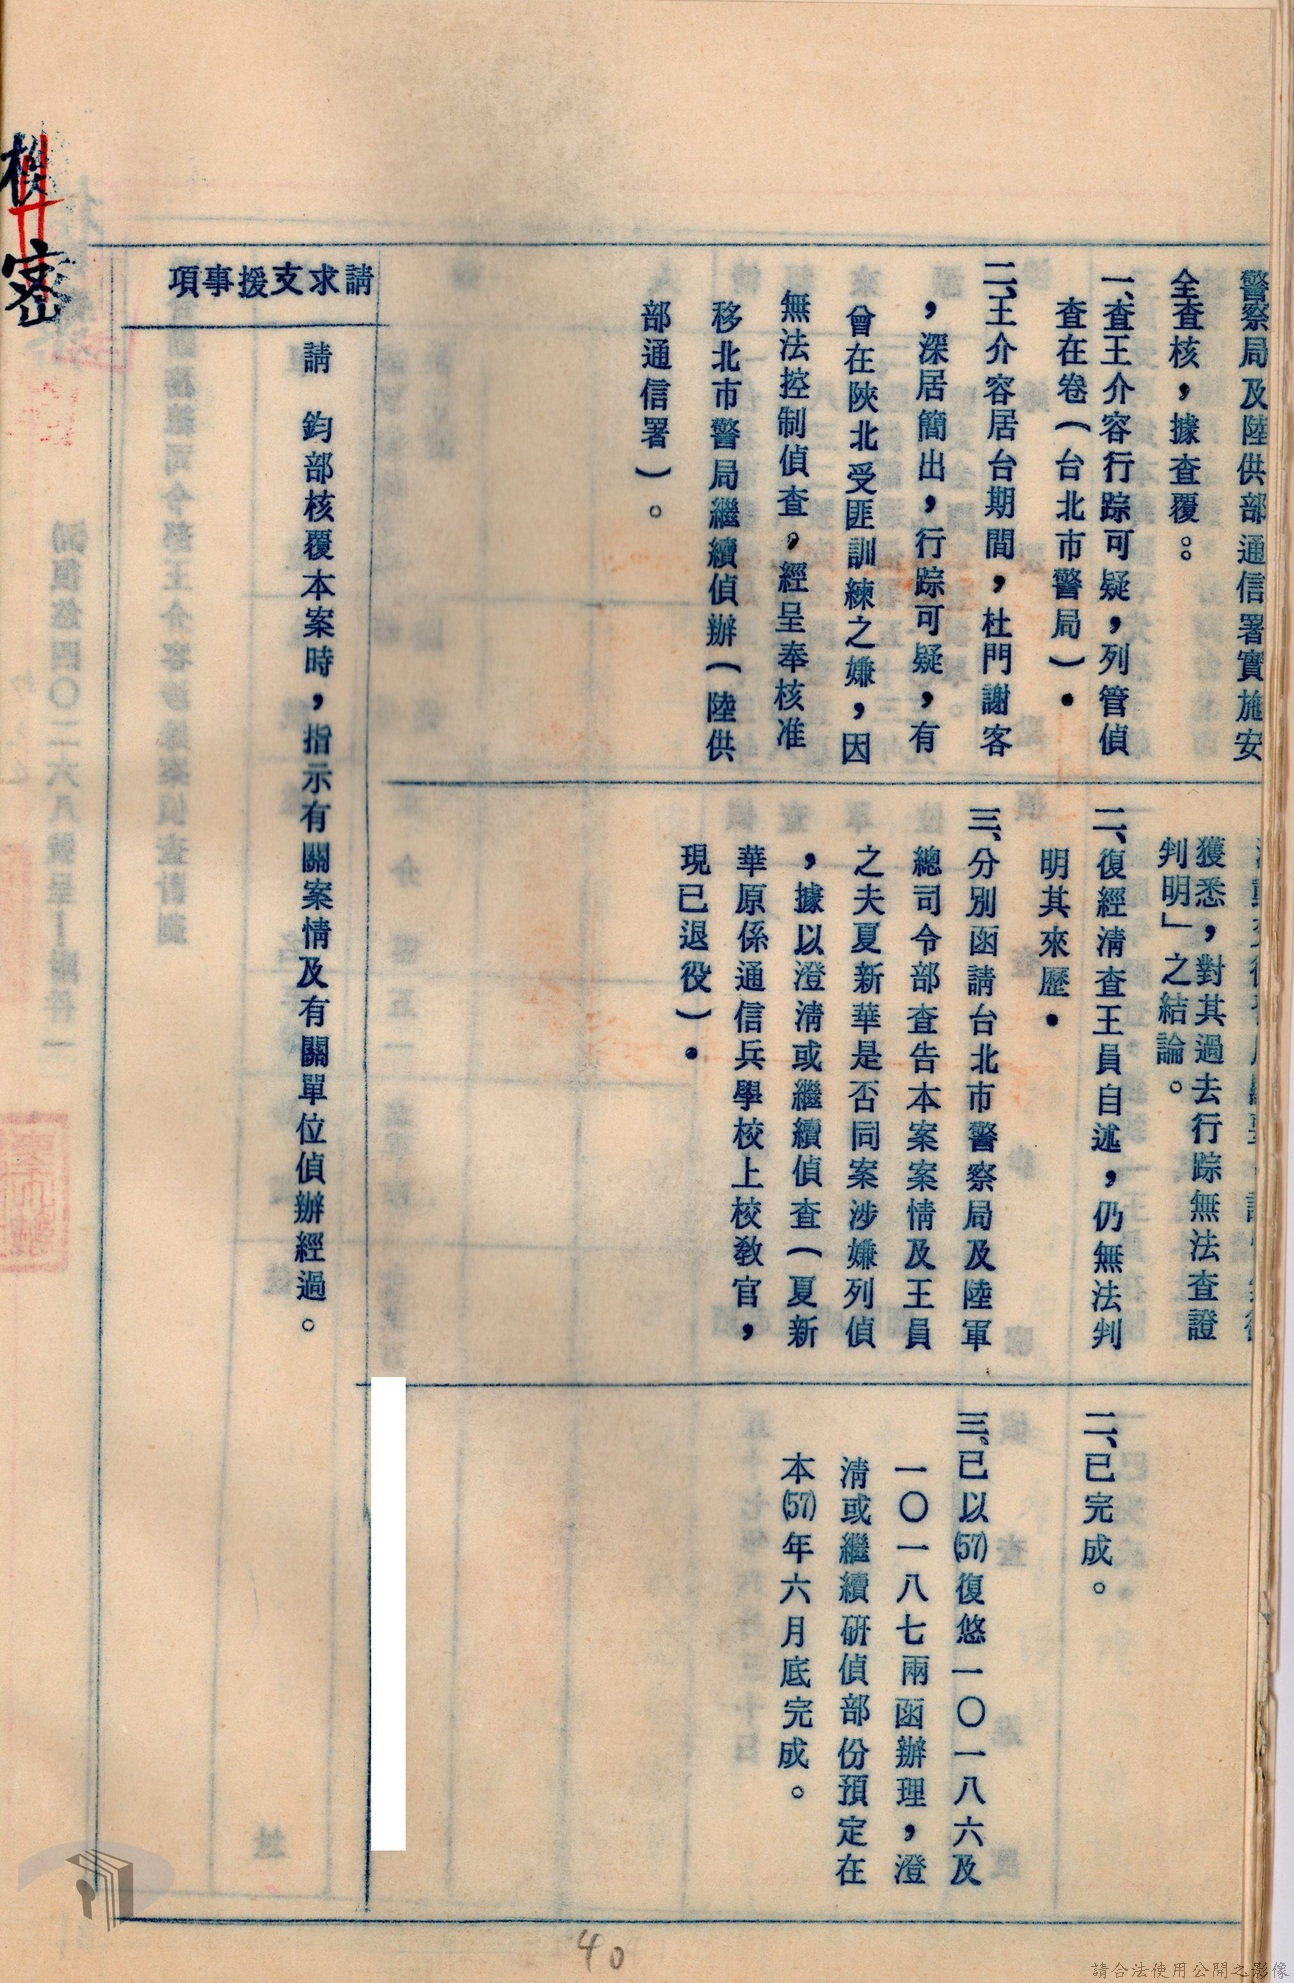 警察局及陸供部通信署實施安
全查核，據查覆。：
一、查王介容行踪可疑，列管偵
查在卷（台北市警局）．
二、王介容居台期間，杜門謝客
，深居簡出，行踪可疑，有
曾在陝北受匪訓練之嫌，因
無法控制偵查，經呈奉核准
移北市警局繼續偵辦（陸供
部通信署）。
獲悉，對其過去行踪無法查證
判明」之結論。
二、復經清查王員自述，仍無法判
明其來歷．
三、分別函請台北市警察局及陸軍
總司令部查告本案案情及王員
之夫夏新華是否同案涉嫌列偵
，據以澄清或繼續偵查（夏新
華原係通信兵學校上校教官，
現已退役）．
二、已完成。
三、已以(57)復悠一〇一八六及
一〇一八七兩函辦理，澄
清或繼續研偵部份預定在
本(57)年六月底完成。
請求支援事項
請　鈞部核覆本案時，指示有關案情及有關單位偵辦經過。
密
40
請合法使用公開之影像